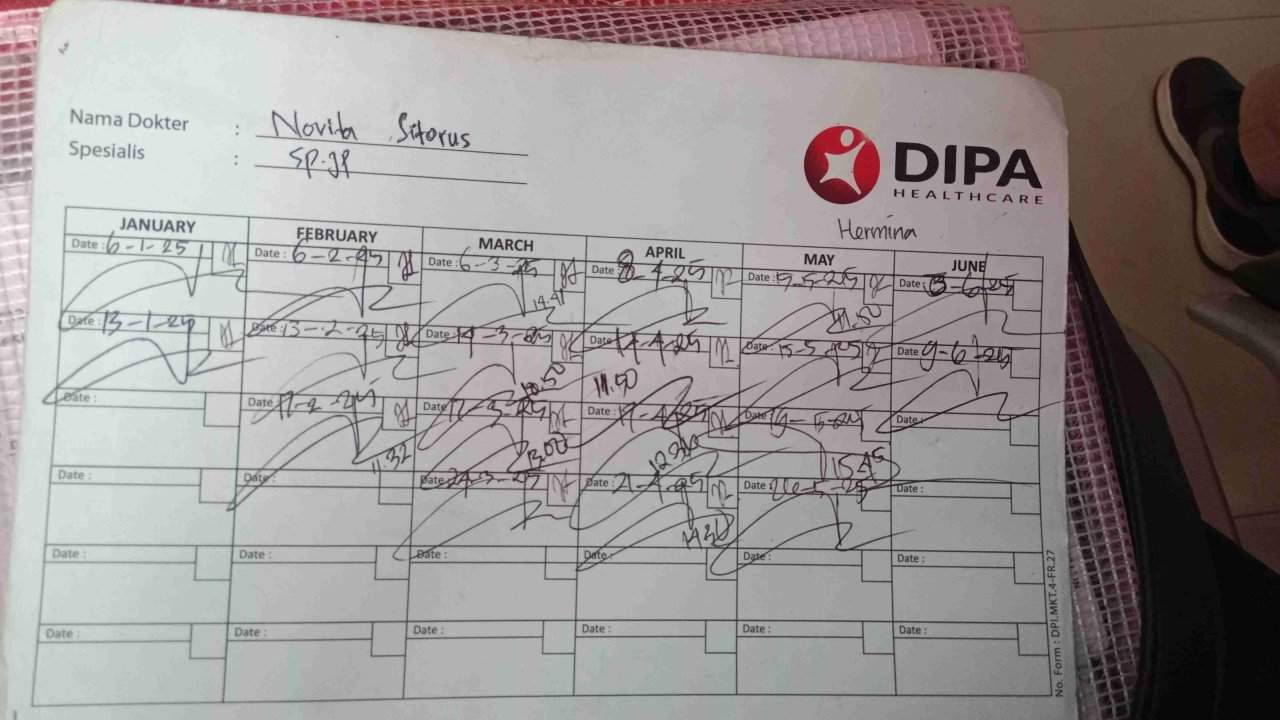 Nama Dokter : Novita Sitorus
Spesialis : Sp.JP
DIPA
HEALTHCARE
Hermina
JANUARY FEBRUARY MARCH APRIL MAY JUNE
Date : 6-1-25 Date : 6-2-25 Date : 6-3-25 Date : 8-4-25 Date : 5-5-25 Date : 3-6-25
14.41 11.50
Date : 13-1-25 Date : 13-2-25 Date : 14-3-25 Date : 14-4-25 Date : 15-5-25 Date : 9-6-25
11.50
Date : Date : 17-2-25 Date : 17-3-25 Date : 17-4-25 Date : 19-5-25 Date :
11.32 13.00 15.45
Date : Date : Date : 24-3-25 Date : 21-4-25 Date : 26-5-25 Date :
Date : Date : Date : Date : Date : Date :
Date : Date : Date : Date : Date : Date :
No. Form : DPI.MKT.4-FR.27